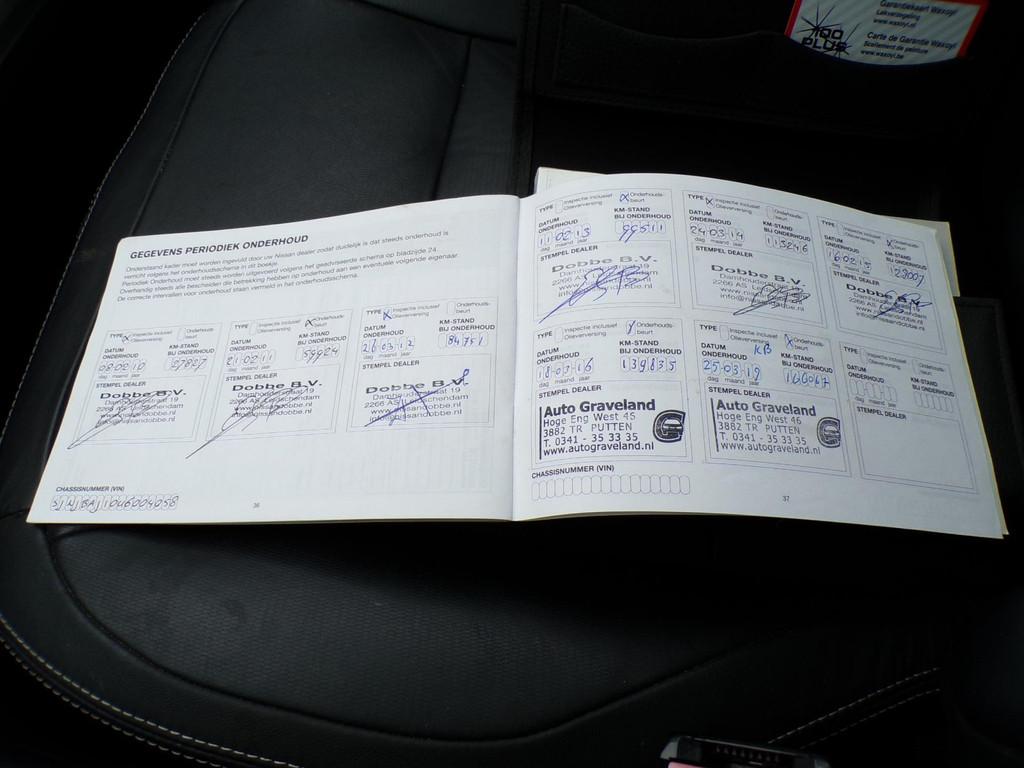 Garantiekaart Waxoyl
Lakverzegeling
www.waxoyl.nl
Carte de Garantie Waxoyl
Scellement de peinture
www.waxoyl.be
100
PLUS
GEGEVENS PERIODIEK ONDERHOUD
Onderstaand kader moet worden ingevuld door uw Nissan dealer zodat duidelijk is dat steeds onderhoud is
verricht volgens het onderhoudsschema in dit boekje.
Periodiek Onderhoud moet steeds worden uitgevoerd volgens het geadviseerde schema op bladzijde 24.
Overhandig steeds alle bescheiden die betrekking hebben op onderhoud aan een eventuele volgende eigenaar.
De correcte intervallen voor onderhoud staan vermeld in het onderhoudsschema.
TYPE X Inspectie inclusief Olieverversing Onderhouds-beurt
DATUM ONDERHOUD KM-STAND BIJ ONDERHOUD
08 02 10 27827
dag maand jaar
STEMPEL DEALER
Dobbe B.V.
2266 AS
TYPE Inspectie inclusief Olieverversing X Onderhouds-beurt
DATUM ONDERHOUD KM-STAND BIJ ONDERHOUD
21 02 11 59924
dag maand jaar
STEMPEL DEALER
Dobbe B.V.
Damhouderstraat 19
2266 AS Leidschendam
www.nissandobbe.nl
TYPE X Inspectie inclusief Olieverversing Onderhouds-beurt
DATUM ONDERHOUD KM-STAND BIJ ONDERHOUD
26 03 12 84751
dag maand jaar
STEMPEL DEALER
Dobbe B.V.
Damhouderstraat 19
2266 AS Leidschendam
www.nissandobbe.nl
info@nissandobbe.nl
CHASSISNUMMER (VIN)
36
TYPE Inspectie inclusief Olieverversing X Onderhouds-beurt
DATUM ONDERHOUD KM-STAND BIJ ONDERHOUD
11 02 13 99511
dag maand jaar
STEMPEL DEALER
Dobbe B.V.
TYPE X Inspectie inclusief Olieverversing Onderhouds-beurt
DATUM ONDERHOUD KM-STAND BIJ ONDERHOUD
24 03 14 113246
dag maand jaar
STEMPEL DEALER
Dobbe B.V.
Damhouderstraat 19
2266 AS
TYPE Inspectie inclusief Olieverversing X Onderhouds-beurt
DATUM ONDERHOUD KM-STAND BIJ ONDERHOUD
16 02 15 123007
dag maand jaar
STEMPEL DEALER
Dobbe B.V.
TYPE Inspectie inclusief Olieverversing Onderhouds-beurt
DATUM ONDERHOUD KM-STAND BIJ ONDERHOUD
18 03 16 139835
dag maand jaar
STEMPEL DEALER
Auto Graveland
Hoge Eng West 46
3882 TR PUTTEN
T. 0341 - 35 33 35
www.autograveland.nl
TYPE Inspectie inclusief Olieverversing X Onderhouds-beurt
DATUM ONDERHOUD KB KM-STAND BIJ ONDERHOUD
25 03 19 160067
dag maand jaar
STEMPEL DEALER
Auto Graveland
Hoge Eng West 46
3882 TR PUTTEN
T. 0341 - 35 33 35
www.autograveland.nl
TYPE Inspectie inclusief Olieverversing Onderhouds-beurt
DATUM ONDERHOUD KM-STAND BIJ ONDERHOUD
dag maand jaar
STEMPEL DEALER
CHASSISNUMMER (VIN)
37